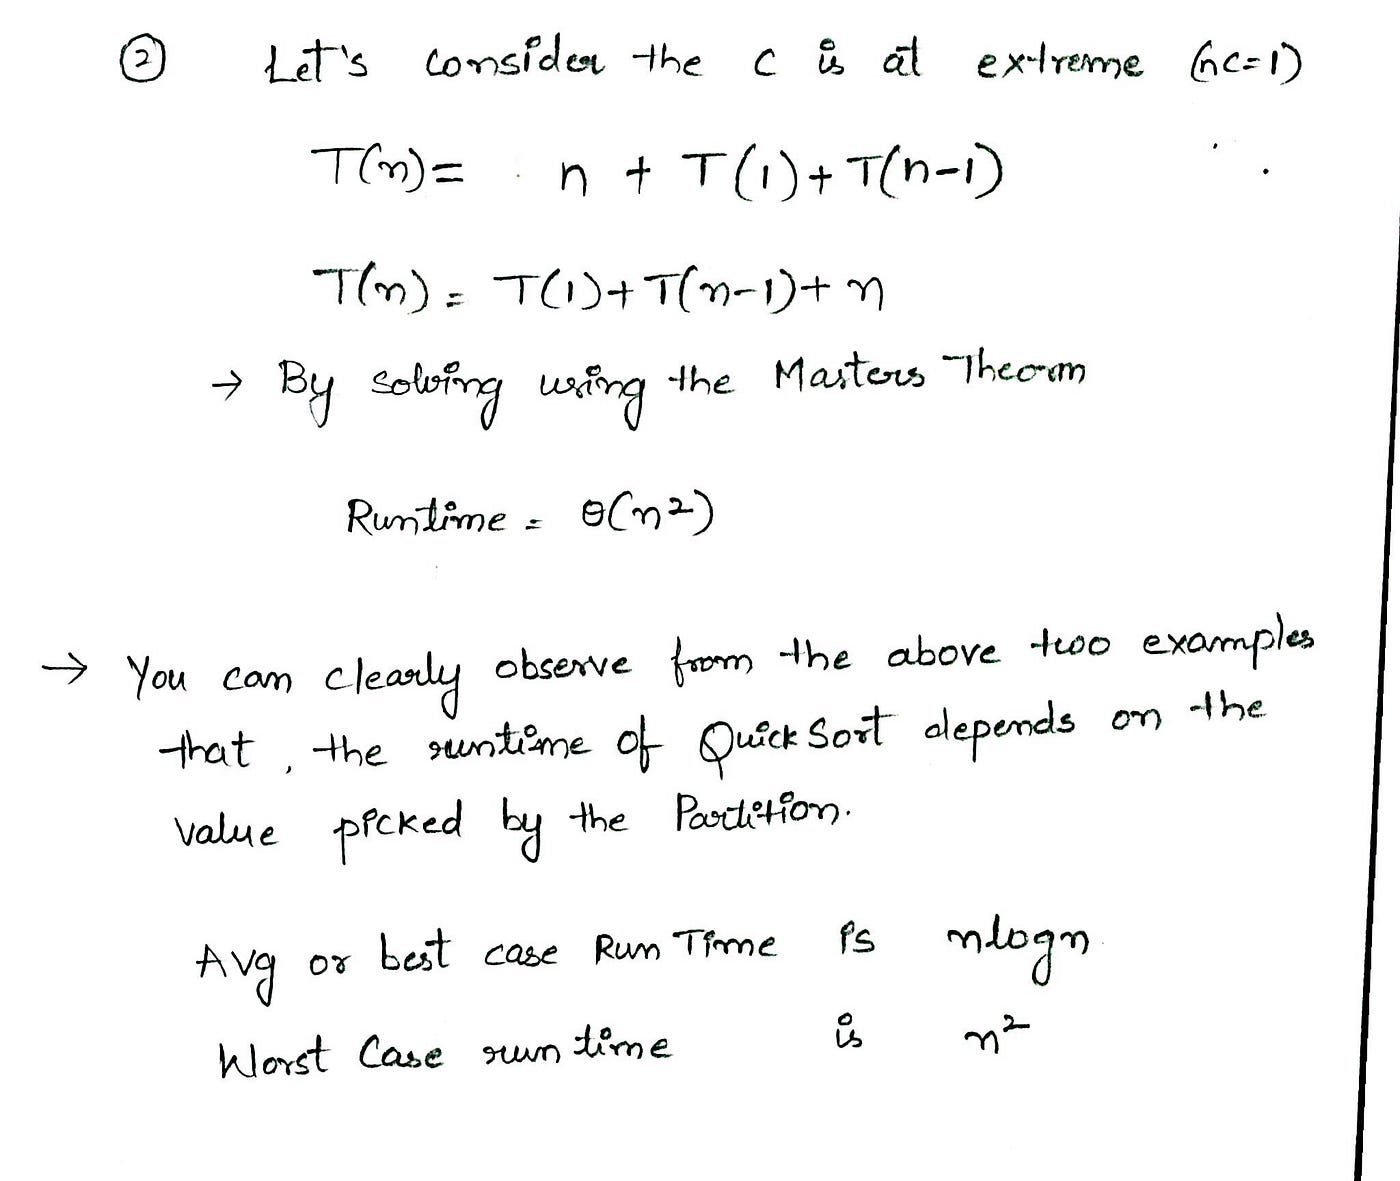 ② Let's consider the c is at extreme (nc=1)
T(n)= n + T(1)+T(n-1)
T(n) = T(1)+T(n-1)+n
→ By solving using the Masters Theorm
Runtime = θ(n²)
→ You can clearly observe from the above two examples
that, the runtime of Quick Sort depends on the
value picked by the Partition.
Avg or best case Run Time is nlogn
Worst Case run time is n²